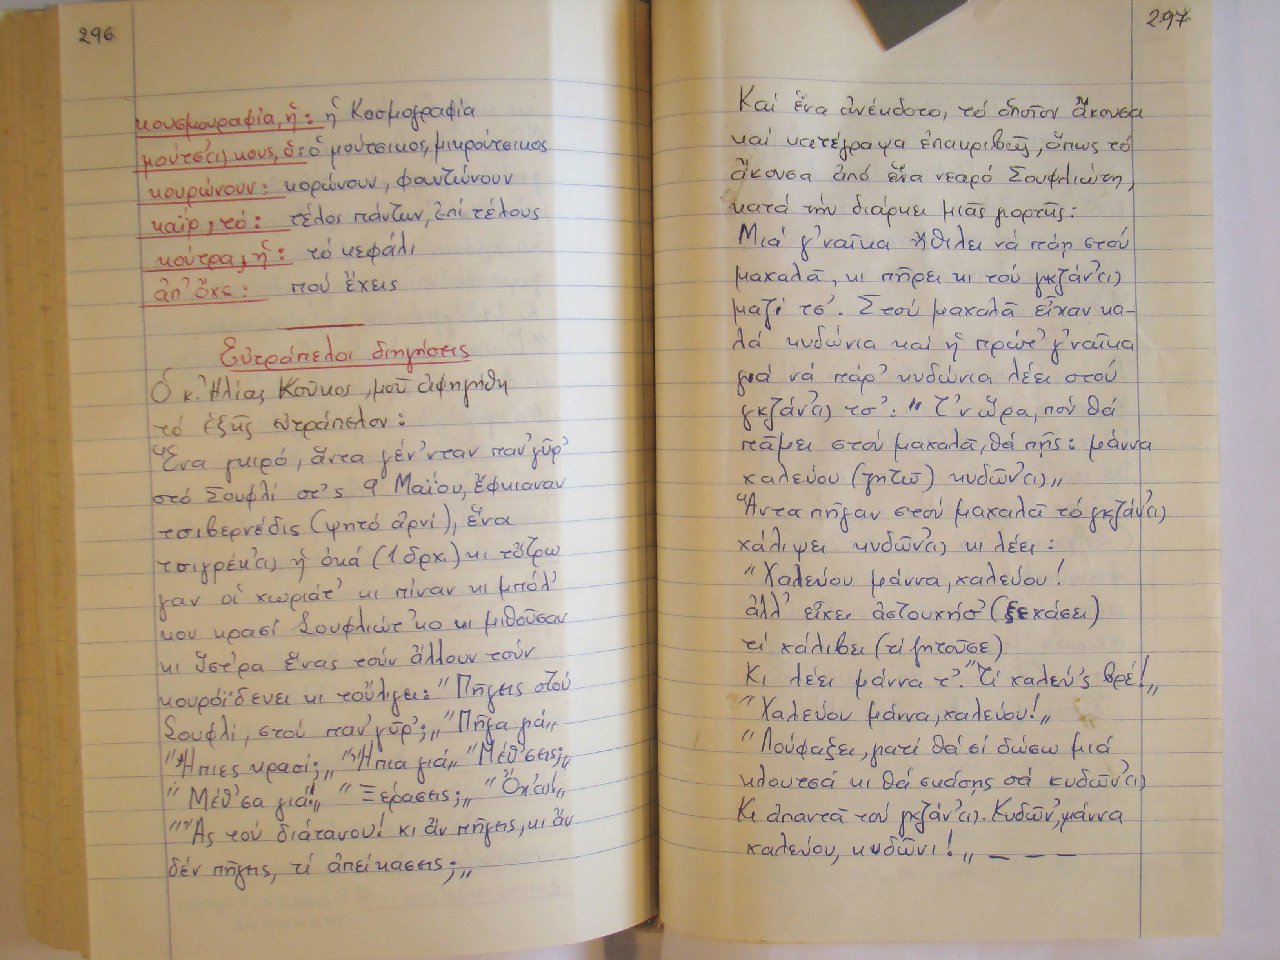 296
κουσμουραφία, ἡ: ἡ Κοσμογραφία
μούτσ(ι)κους, ὁ: ὁ μούτσικος, μικρούτσικος
κουρώνουν: κορώνουν, φουντώνουν
καΐρ, τό: τέλος πάντων, ἐπί τέλους
κούτρα, ἡ: τό κεφάλι
ἀπ' ὄχς: πού ἔχεις
Εὐτράπελοι διηγήσεις
Ὁ κ. Ἠλίας Κούκος, μοῦ ἀφηγήθη
τό ἑξῆς εὐτράπελον:
"Ένα μικρό, ἄντα γέν'νταν παν'γῦρ'
στό Σουφλί στ'ς 9 Μαΐου, ἔφκιαναν
τσιβερνέδις (ψητό ἀρνί), ἕνα
τσιγρέκ(ι) ἡ ὀκά (1 δρχ.) κι τὄτρω
γαν οἱ χωριάτ' κι πίναν κι μπόλ'
κου κρασί Σουφλιώτ'κο κι μιθοῦσαν
κι ὕστερα ἕνας τούν ἄλλουν τούν
κουρόϊδευει κι τοὔλιγει: "Πῆγεις στού
Σουφλί, στού παν'γῦρ';„ "Πῆγα γιά„
"Ἤπιες κρασί;„ "Ἤπια γιά„ "Μέθ'σεις;„
"Μέθ'σα γιά!„ "Ξέρασεις;„ "Ὄχ'ι!„
"Ἄς τού διάτανου! κι ἄν πῆγεις, κι ἄν
δέν πῆγεις, τί ἀπείκασεις;„
297
Καί ἕνα ἀνέκδοτο, τό ὁποῖον ἄκουσα
καί κατέγραψα ἐπακριβῶς, ὅπως τό
ἄκουσα ἀπό ἕνα νεαρό Σουφλιώτη,
κατά τήν διάρκει μιᾶς γιορτῆς:
Μιά γ'ναῖκα ἤθιλει νά πάῃ στού
μαχαλᾶ, κι πῆρει κι τού γκζάν'(ι)
μαζί τσ'. Στού μαχαλᾶ εἶχαν κα-
λά κυδώνια καί ἡ πρώτ' γ'ναῖκα
γιά νά πάρ' κυδώνια λέει στού
γκζάν'(ι) τσ': "Τ'ν ὥρα, πού θά
πᾶμει στού μαχαλᾶ, θά πῇς: μάννα
χαλεύου (ζητῶ) κυδῶν'(ι)„
Ἄντα πῆγαν στού μαχαλᾶ τό γκζάν'(ι)
χάλιψει κυδῶν'(ι) κι λέει:
"Χαλεύου μάννα, χαλεύου!
ἀλλ' εἶχει ἀστουχήσ' (ξεχάσει)
τί χάλιβει (τί ζητοῦσε)
Κι λέει μάννα τ'. "Τί χαλεύ'ς βρέ!„
"Χαλεύου μάννα, χαλεύου!„
"Λούφαξει, γιατί θά σί δώσω μιά
κλουτσά κι θά σκάσῃς σά κυδῶν'(ι)
Κι ἀπαντᾶ τού γκζάν'(ι). Κυδῶν', μάννα
χαλεύου, κυδῶνι!„ — — —